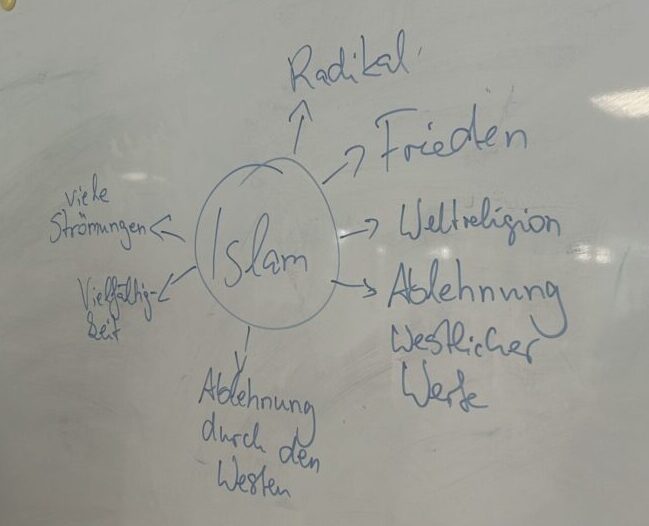 Radikal
Frieden
viele
Strömungen
Weltreligion
Islam
Vielfältig-
keit
Ablehnung
Westlicher
Werte
Ablehnung
durch den
Westen